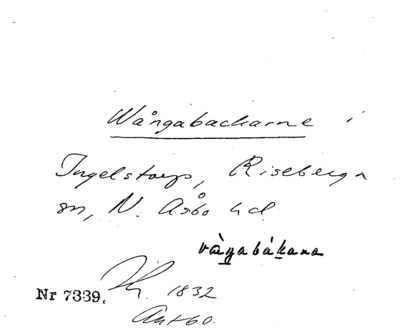 Wångabackarne i
Ingelstorp, Riseberga
sn, N. Åsbo hd
vàgabákana
Nr 7339. 1832